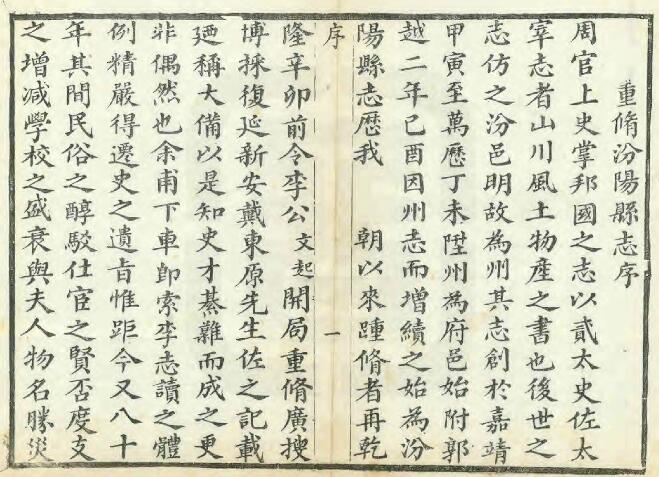 重脩汾陽縣志序
周官上史掌邦國之志以貳太史佐太
宰志者山川風土物產之書也後世之
志仿之汾邑明故為州其志創於嘉靖
甲寅至萬歷丁未陞州為府邑始附郭
越二年己酉因州志而增續之始為汾
陽縣志歷我 朝以來踵脩者再乾
序 一
隆辛卯前令李公文起開局重脩廣搜
博採復延新安戴東原先生佐之記載
廼稱大備以是知史才綦難而成之更
非偶然也余甫下車即索李志讀之體
例精嚴得遷史之遺旨惟距今又八十
年其間民俗之醇駁仕宦之賢否度支
之增減學校之盛衰與夫人物名勝災